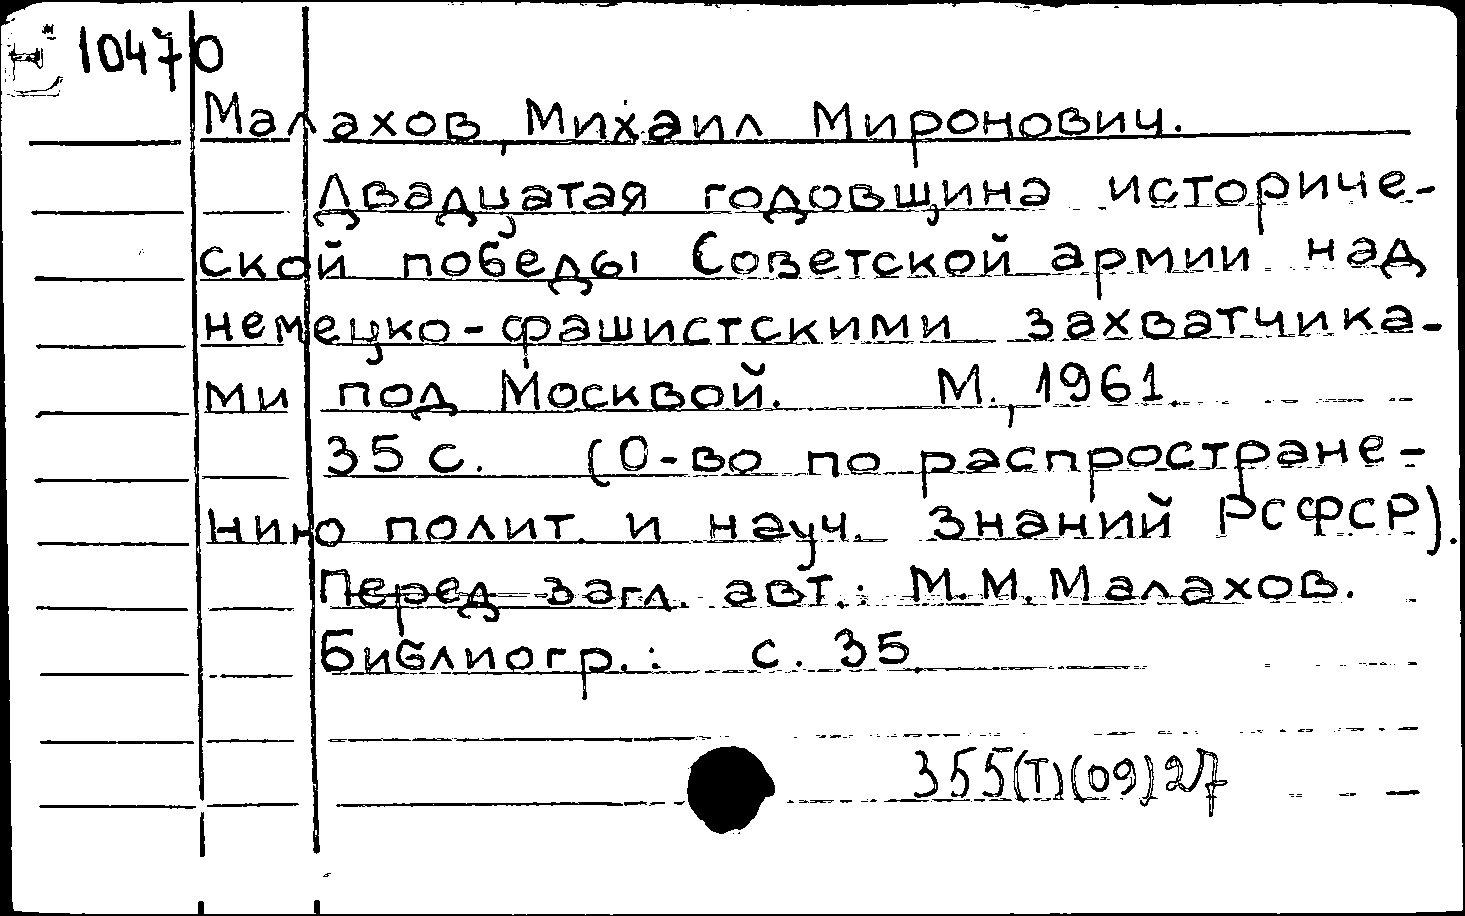 10470
Малахов, Михаил Миронович.
Двадцатая годовщина историче-
ской победы Советской армии над
немецко-фашистскими захватчика-
ми под Москвой. М., 1961.
35 с. (О-во по распростране-
нию полит. и науч. знаний РСФСР).
Перед загл. авт.: М.М. Малахов.
Библиогр.: с. 35.
355(Т)(09)27